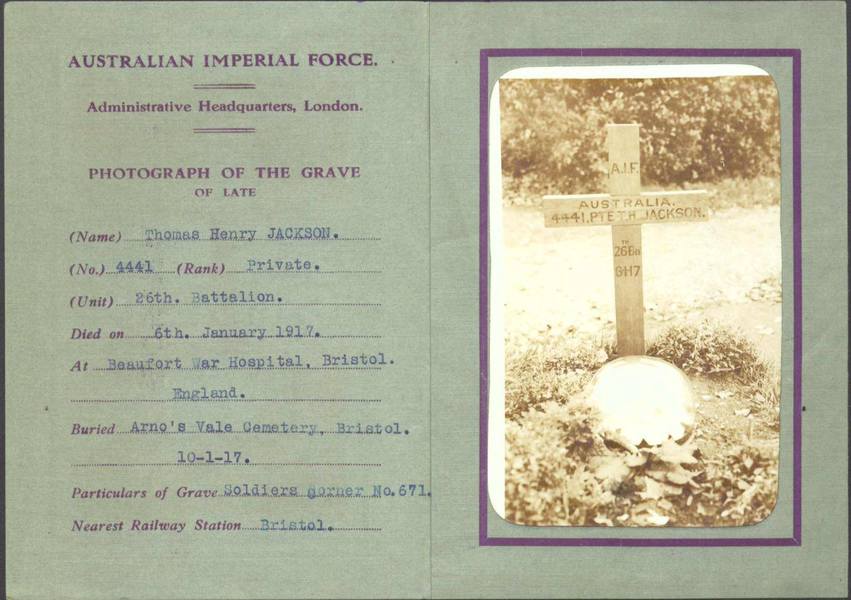 AUSTRALIAN IMPERIAL FORCE.
Administrative Headquarters, London.
PHOTOGRAPH OF THE GRAVE
OF LATE
(Name) Thomas Henry JACKSON.
(No.) 4441 (Rank) Private.
(Unit) 26th. Battalion.
Died on 6th. January 1917.
At Beaufort War Hospital, Bristol.
England.
Buried Arno's Vale Cemetery, Bristol.
10-1-17.
Particulars of Grave Soldiers corner No.671.
Nearest Railway Station Bristol.
A.I.F.
AUSTRALIA.
4441.PTE T.H. JACKSON.
26TH Bn
6·1·17